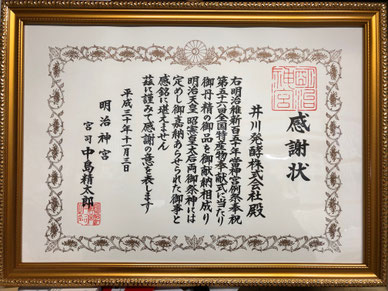 感謝状
井川発酵株式会社殿
右明治維新百五十年当神宮例祭奉祝
第五十六回全国特産物奉献式に当たり
御丹精の御品を御献納相成り
明治天皇昭憲皇太后両御祭神には
定めし御嘉納あらせられた御事と
感銘に堪えません
茲に謹みて感謝の意を表します
平成三十年十一月三日
明治神宮
宮司 中島精太郎